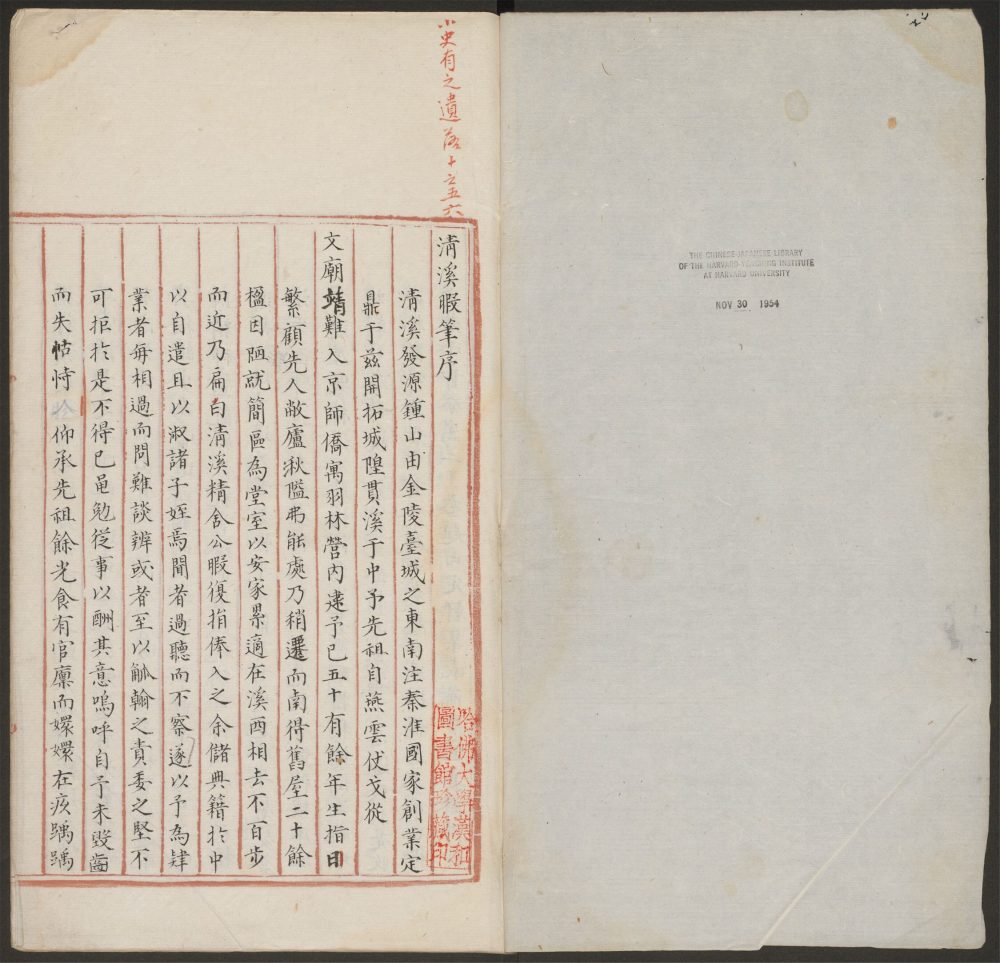 THE CHINESE-JAPANESE LIBRARY
OF THE HARVARD-YENCHING INSTITUTE
AT HARVARD UNIVERSITY
NOV 30 1954
小史有之遺落十之五六
清溪暇筆序
清溪發源鍾山由金陵臺城之東南注秦淮國家創業定
鼎于兹開拓城隍貫溪于中予先祖自燕雲仗戈從
文廟靖難入京師僑寓羽林營内逮予已五十有餘年生指日
繁顧先人敝廬湫隘弗能處乃稍遷而南得舊屋二十餘
楹因陋就簡區為堂室以安家累適在溪西相去不百步
而近乃扁曰清溪精舍公暇復捐俸入之余儲典籍扵中
以自遣且以淑諸子姪焉聞者過聽而不察遂以予為肄
業者每相過而問難談辨或者至以觚翰之責委之堅不
可拒扵是不得已黽勉從事以酬其意嗚呼自予未毀齒
而失怙恃 仰承先祖餘光食有官廩而嬛嬛在疚踽踽
哈佛大學漢和
圖書館珍藏印